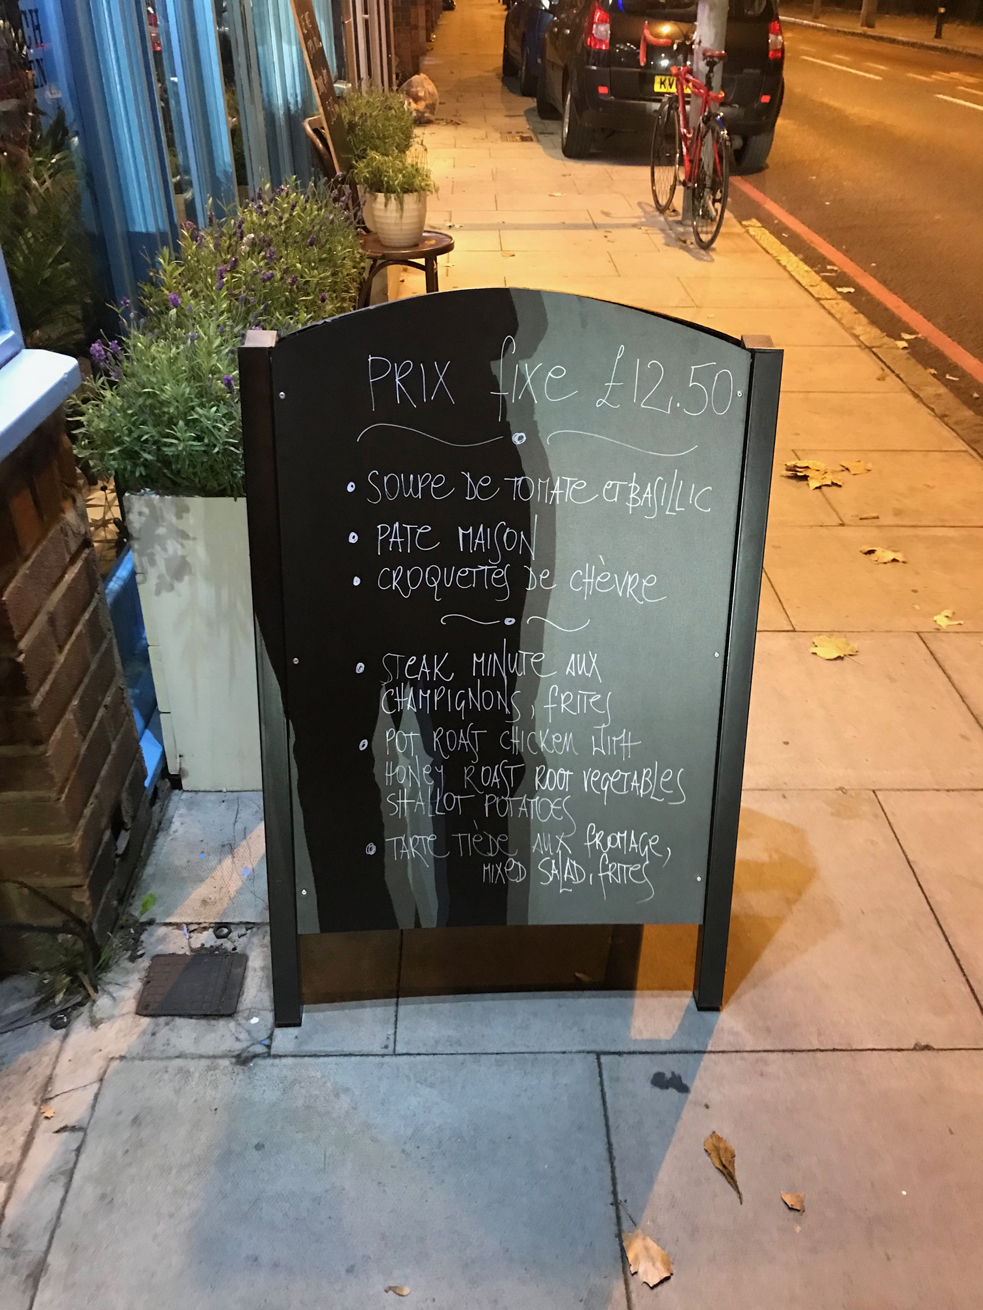 PRIX fixe £12.50
• SOUPE DE TOMATE ET BASILLIC
• PATE MAISON
• CROQUETTES DE CHÈVRE
• STEAK MINUTE AUX
CHAMPIGNONS, FRITES
• POT ROAST CHICKEN WITH
HONEY ROAST ROOT VEGETABLES
SHALLOT POTATOES
• TARTE TIÈDE AUX FROMAGE,
MIXED SALAD, FRITES